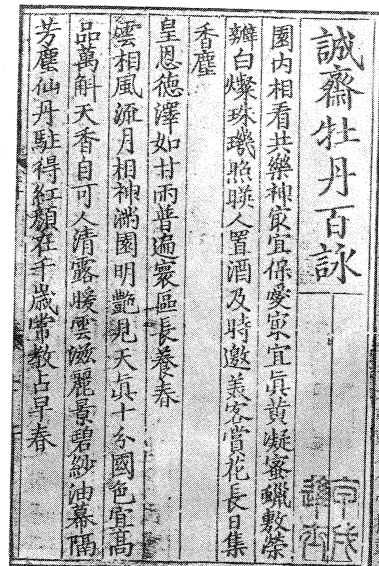 誠齋牡丹百詠
園内相看共樂神㝡宜保愛㝡宜眞黄凝蜜蠟敷榮
瓣白燦珠璣照暎人置酒及時邀羙客賞花長日集
香塵
皇恩德澤如甘雨普遍寰區長養春
雲相風流月相神滿園明艶見天眞十分國色宜髙
品萬斛天香自可人清露暖雲滋麗景碧紗油幕隔
芳塵仙丹駐得紅顔在千歳常教占早春